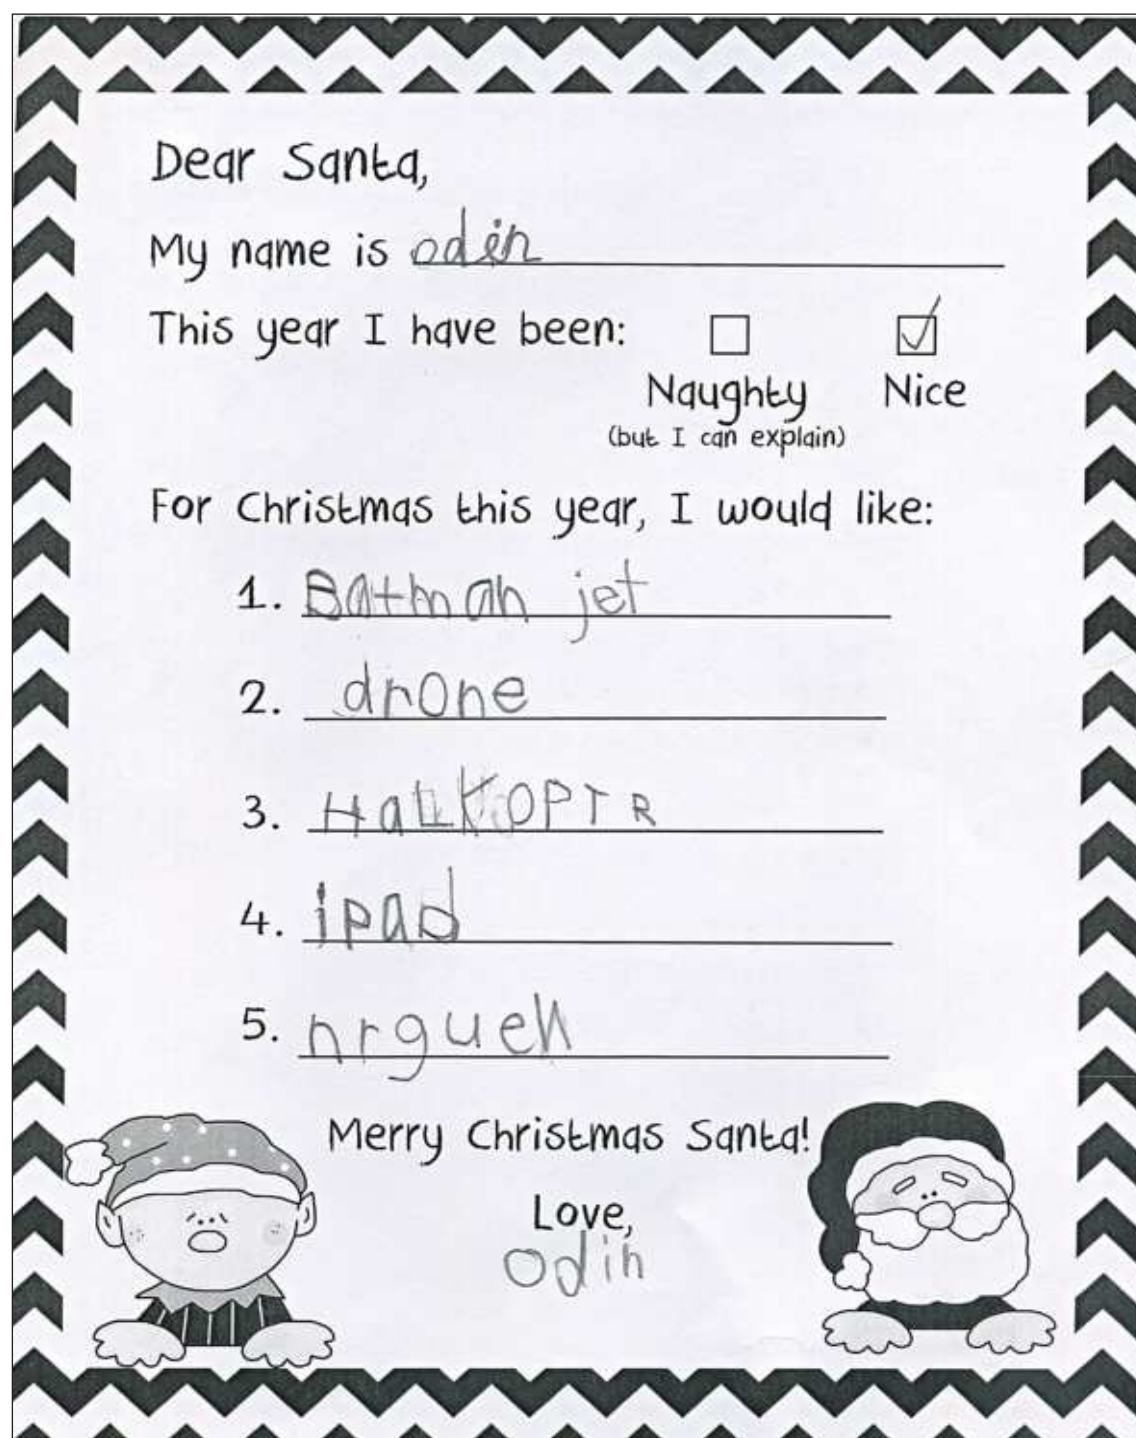 Dear Santa,
My name is odin
This year I have been:
Naughty Nice
(but I can explain)
For Christmas this year, I would like:
1. Batman jet
2. drone
3. HaLKOPTR
4. ipad
5.
Merry Christmas Santa!
Love,
odin